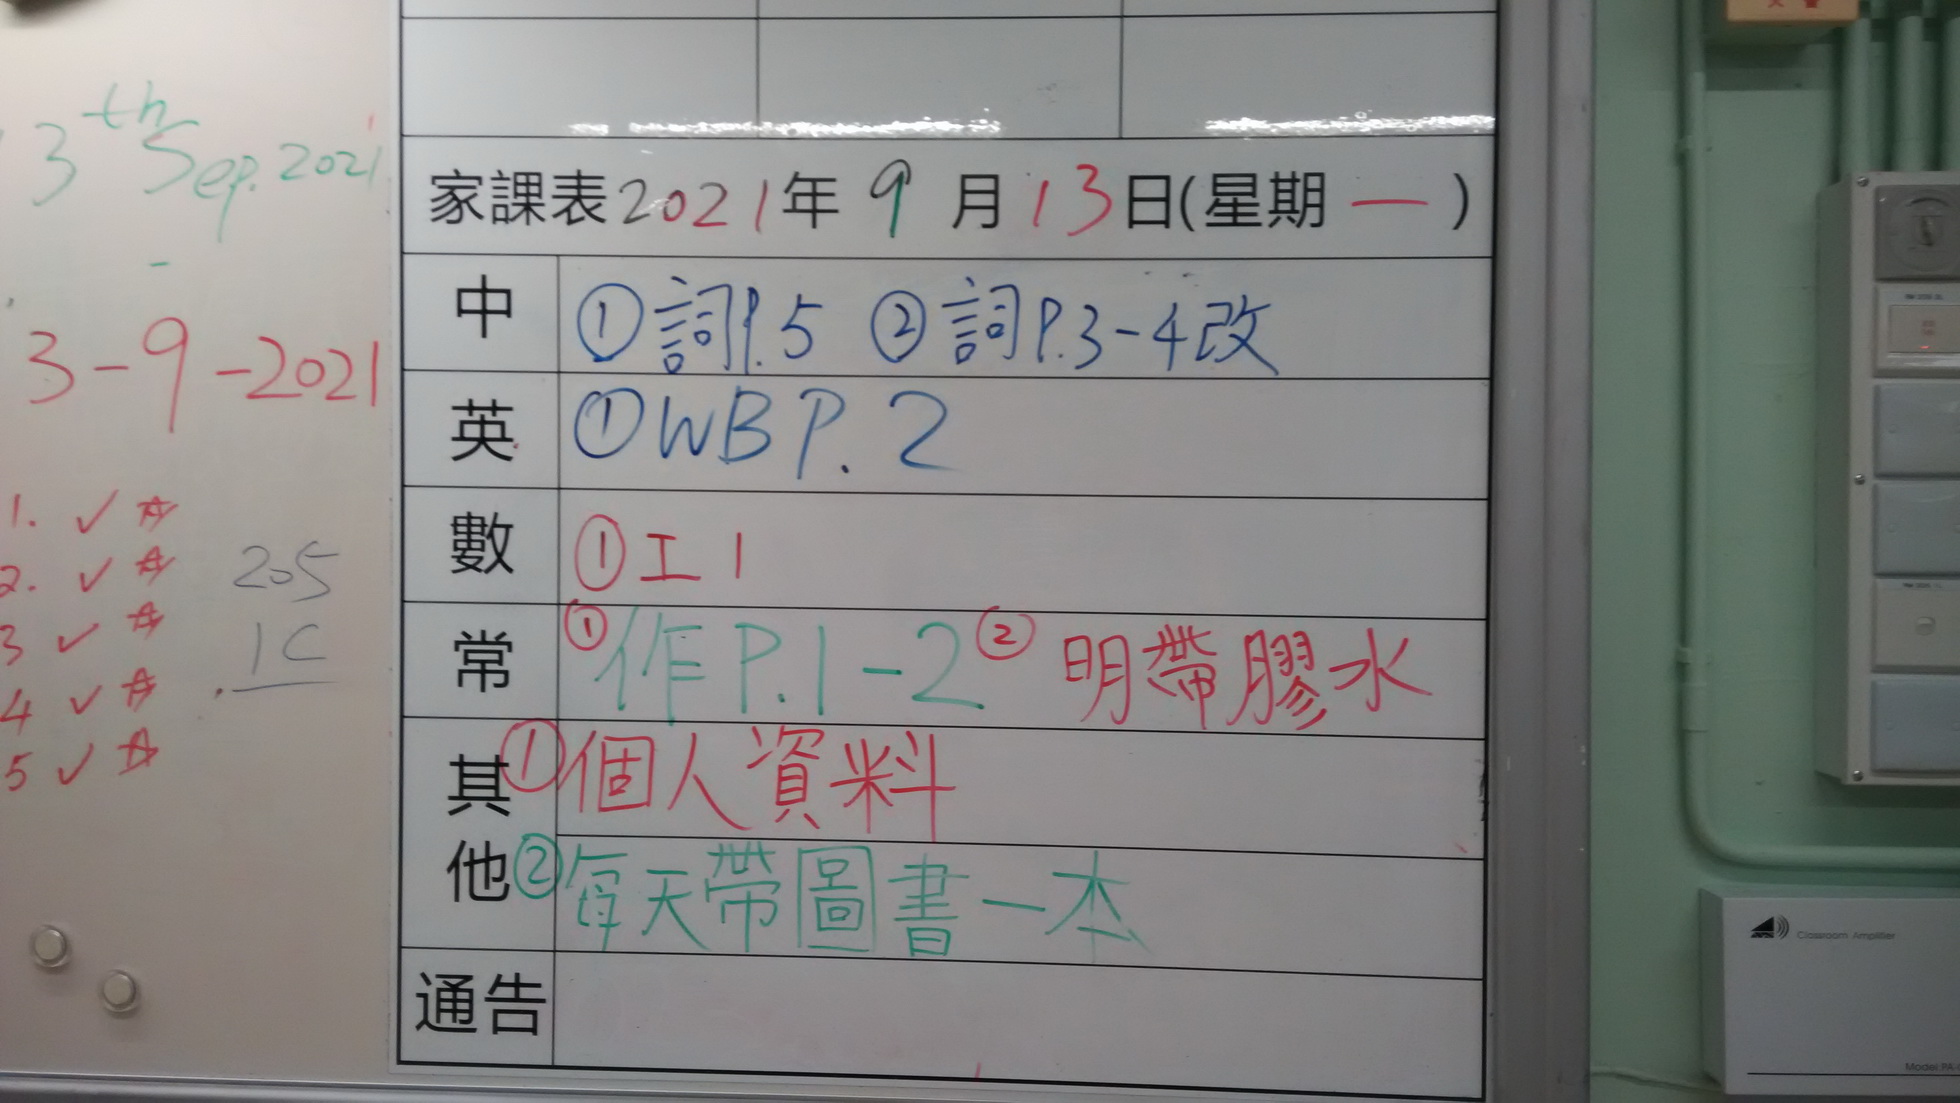 3th Sep. 2021
3-9-2021
1. ✓ ☆
2. ✓ ☆
3 ✓ ☆
4 ✓ ☆
5 ✓ ☆
205
1C
家課表2021年 9 月 13日(星期 一 )
中 ①詞P.5 ②詞P.3-4改
英 ①WB P.2
數 ①工1
常 ①作P.1-2 ②明帶膠水
其他 ①個人資料
②每天帶圖書一本
通告
Classroom Amplifier
Model PA